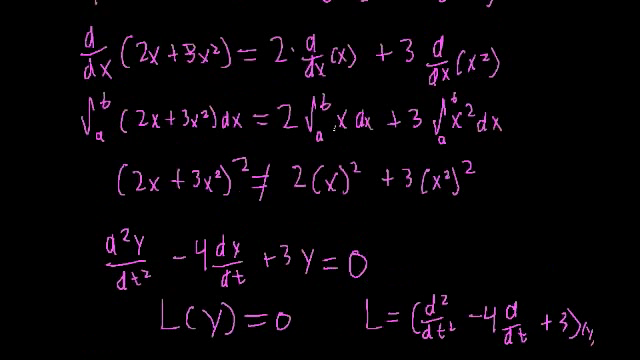 d/dx (2x+3x²) = 2·d/dx(x) + 3 d/dx(x²)
∫ₐᵇ (2x+3x²)dx = 2∫ₐᵇ x dx + 3∫ₐᵇ x²dx
(2x+3x²)² ≠ 2(x)² + 3(x²)²
d²y/dt² - 4dx/dt + 3y = 0
L(y)=0 L=(d²/dt² - 4d/dt + 3)(y)